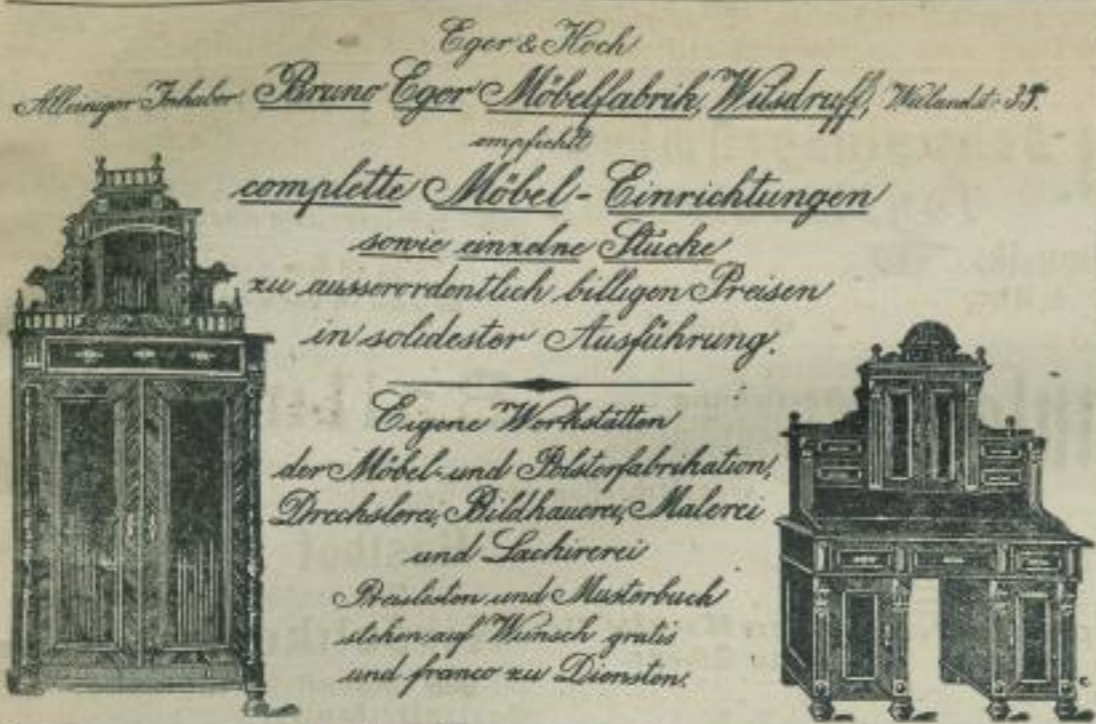 Eger & Koch
Alleiniger Inhaber Bruno Eger Möbelfabrik, Wilsdruff,
empfiehlt
complette Möbel - Einrichtungen
sowie einzelne Stücke
zu ausserordentlich billigen Preisen
in solidester Ausführung.
Eigene Werkstätten
der Möbel- und Polsterfabrikation,
Drechslerei, Bildhauerei, Malerei
und Lackirerei
Preislisten und Musterbuch
stehen auf Wunsch gratis
und franco zu Diensten.